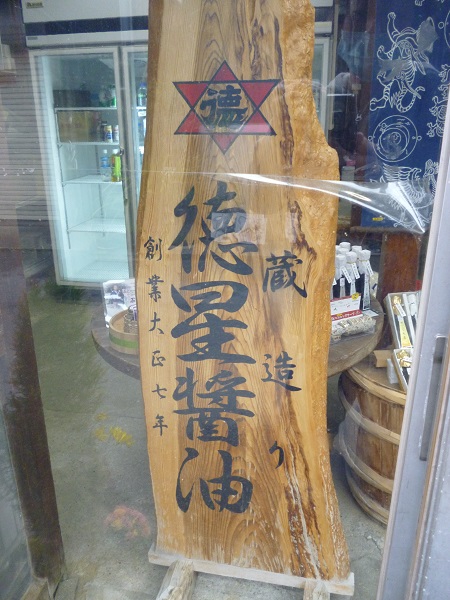 徳
蔵造り
徳星醤油
創業大正七年